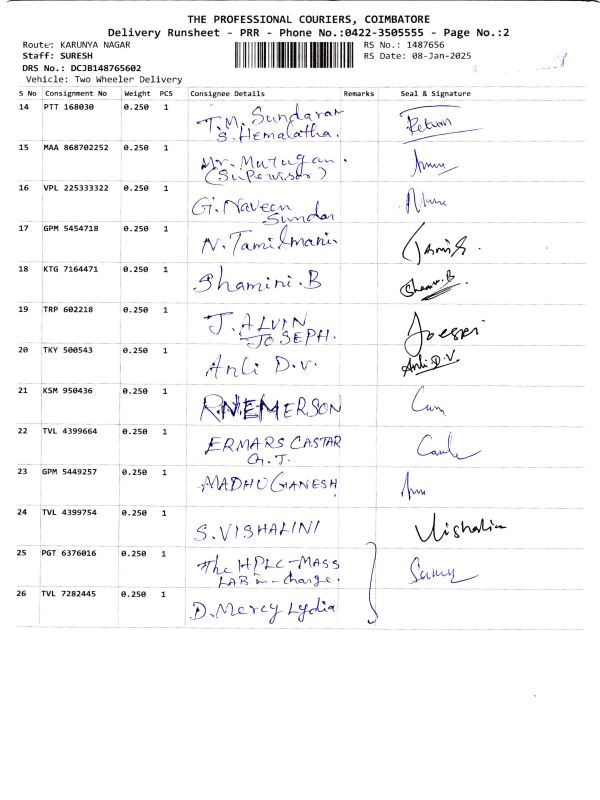 THE PROFESSIONAL COURIERS, COIMBATORE
Delivery Runsheet - PRR - Phone No.:0422-3505555 - Page No.:2
Route: KARUNYA NAGAR RS No.: 1487656
Staff: SURESH RS Date: 08-Jan-2025
DRS No.: DCJB148765602
Vehicle: Two Wheeler Delivery
S No Consignment No Weight PCS Consignee Details Remarks Seal & Signature
14 PTT 168030 0.250 1 T.M. Sundaram Return
S. Hemalatha.
15 MAA 868702252 0.250 1 Mr. Murugan.
(Supervisor)
16 VPL 225333322 0.250 1 G. Naveen
Sundar
17 GPM 5454718 0.250 1 N. Tamilmani.
18 KTG 7164471 0.250 1 Shamini. B
19 TRP 602218 0.250 1 J. ALVIN
JOSEPH.
20 TKY 500543 0.250 1 Anli D.V. Anli D.V.
21 KSM 950436 0.250 1 R.NEMERSON
22 TVL 4399664 0.250 1 ERMARS CASTAR
G.J.
23 GPM 5449257 0.250 1 MADHU GANESH
24 TVL 4399754 0.250 1 S. VISHALINI Vishalin
25 PGT 6376016 0.250 1 The HPLC-MASS
LAB in-charge.
26 TVL 7282445 0.250 1 D. Mercy Lydia